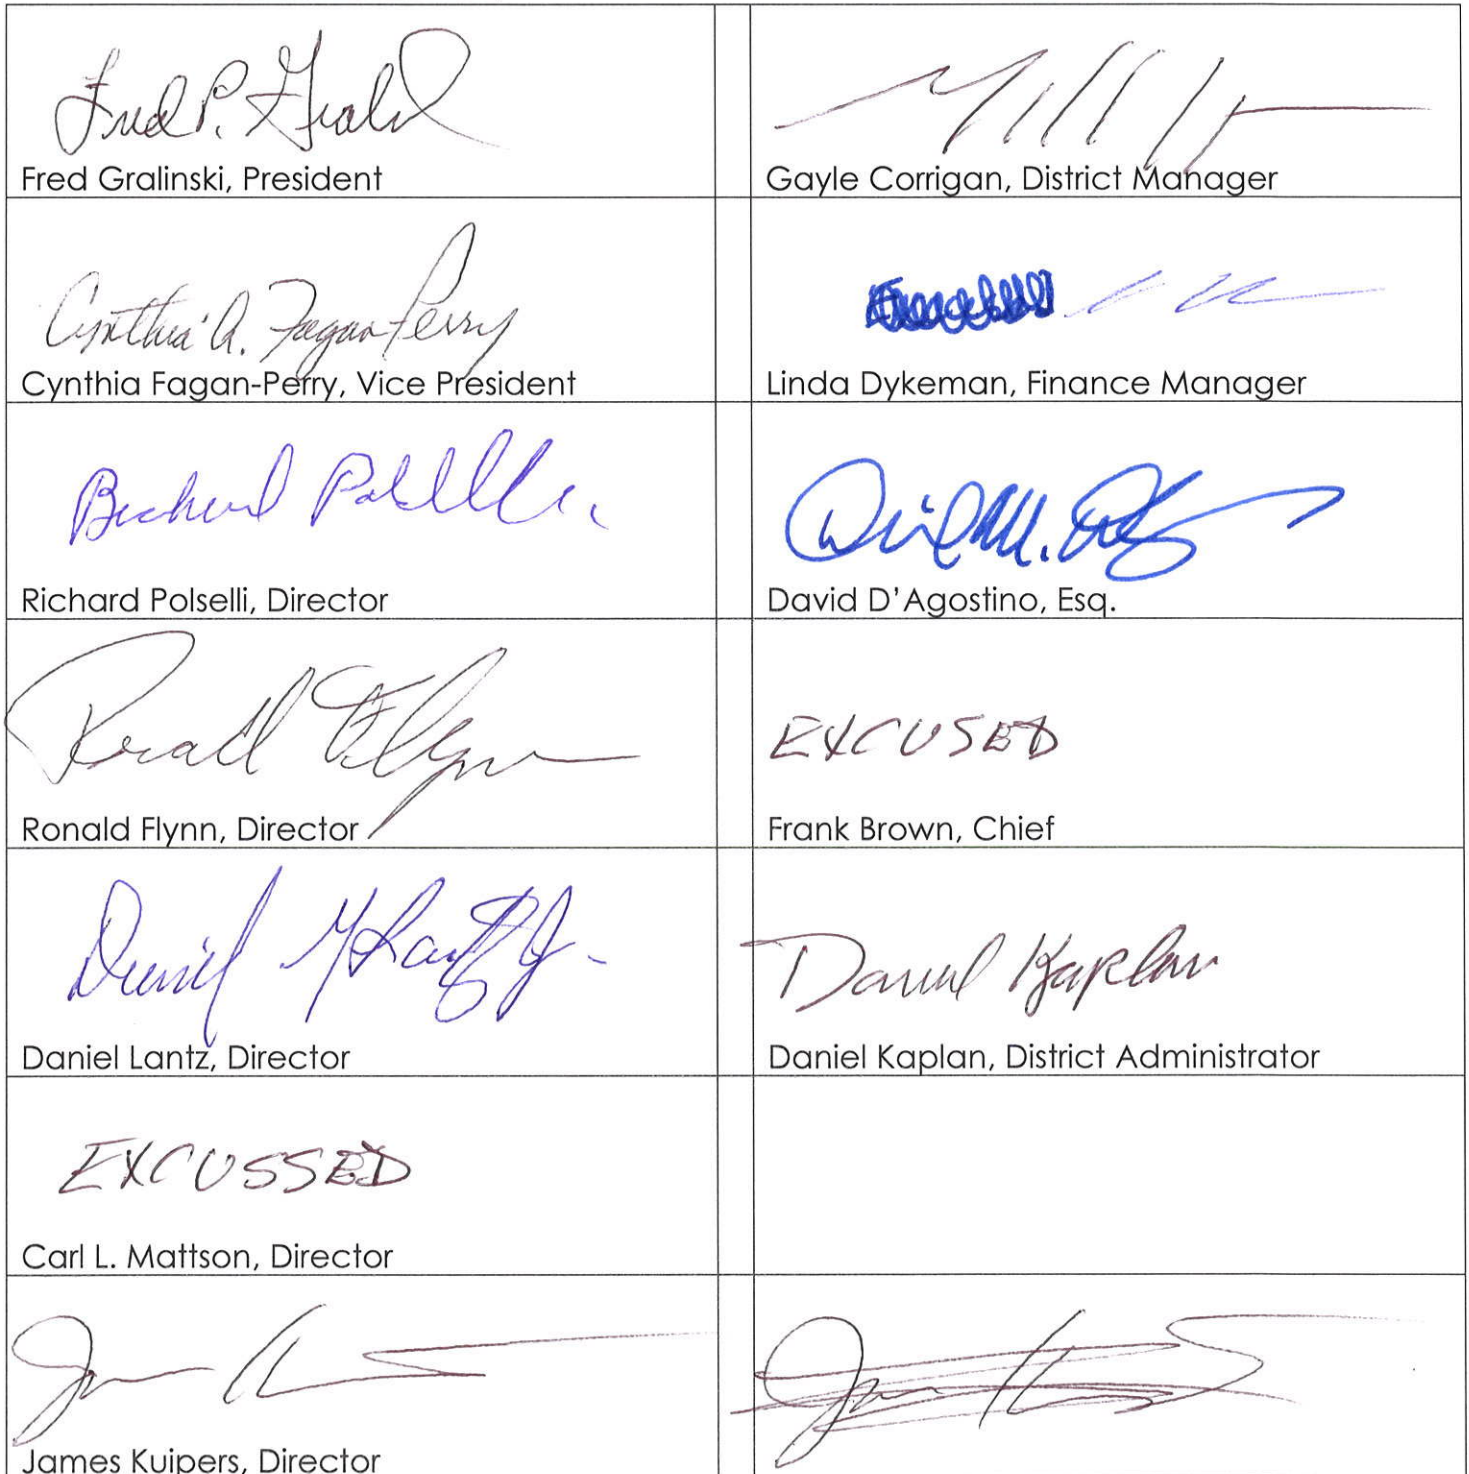 Fred P. Grald
Fred Gralinski, President
Gayle Corrigan, District Manager
Cynthia A. Fagan-Perry
Cynthia Fagan-Perry, Vice President
Linda Dykeman, Finance Manager
Richard Polselli
Richard Polselli, Director
David M. D'Ag
David D'Agostino, Esq.
Ronald Flynn
Ronald Flynn, Director
EXCUSED
Frank Brown, Chief
Daniel M Lantz Jr
Daniel Lantz, Director
Daniel Kaplan
Daniel Kaplan, District Administrator
EXCUSSED
Carl L. Mattson, Director
James Kuipers, Director